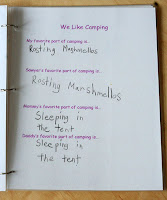 We Like Camping
My favorite part of camping is..
Rosting Mashmellos
Sawyer's favorite part of camping is..
Rosting Marshmallos
Mommy's favorite part of camping is..
Sleeping in
the tent
Daddy's favorite part of camping is..
Sleeping in
the tent